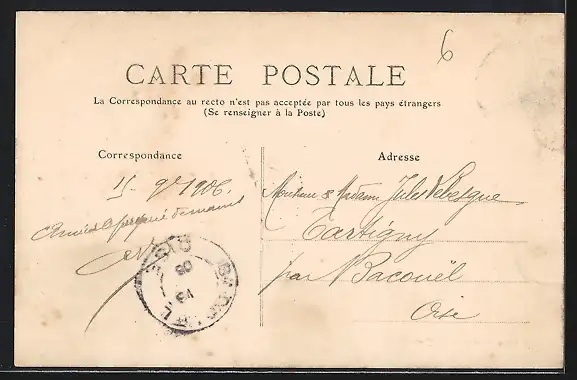 6
CARTE POSTALE
La Correspondance au recto n'est pas acceptée par tous les pays étrangers
(Se renseigner à la Poste)
Correspondance
Adresse
15 - 9bre 1906.
Monsieur & Madame Jules Lebesgue
Tartigny
par Bacouël
Oise